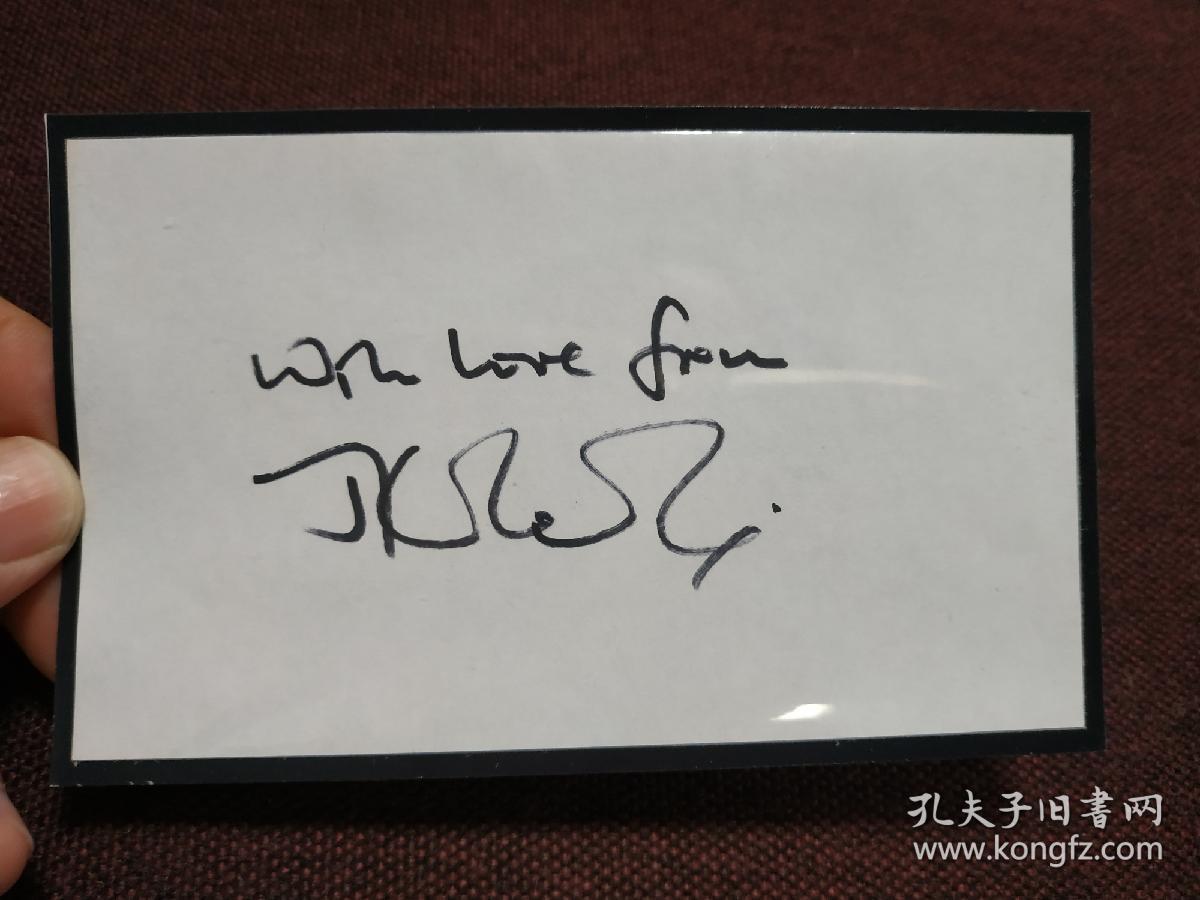 with love from
JK Rowling
孔夫子旧書网
www.kongfz.com